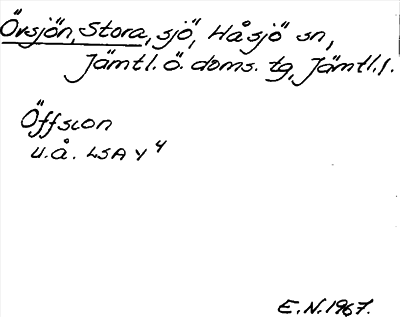 Örsjön, Stora, sjö, Håsjö sn,
Jämtl. ö. doms. tg, Jämtl. l.
Öffsion
u.å. LSA Y 4
E.N. 1967.